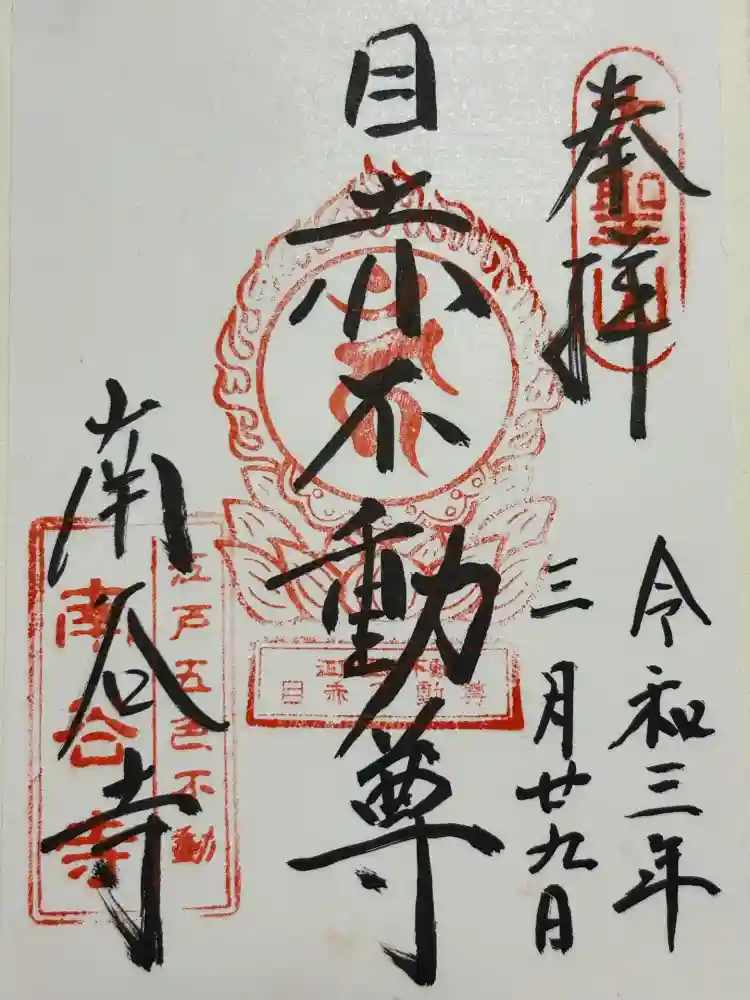 奉拝
令和三年
三月廿九日
目赤不動尊
南谷寺
江戸五色不動
目赤不動尊
江戸五色不動
南谷寺